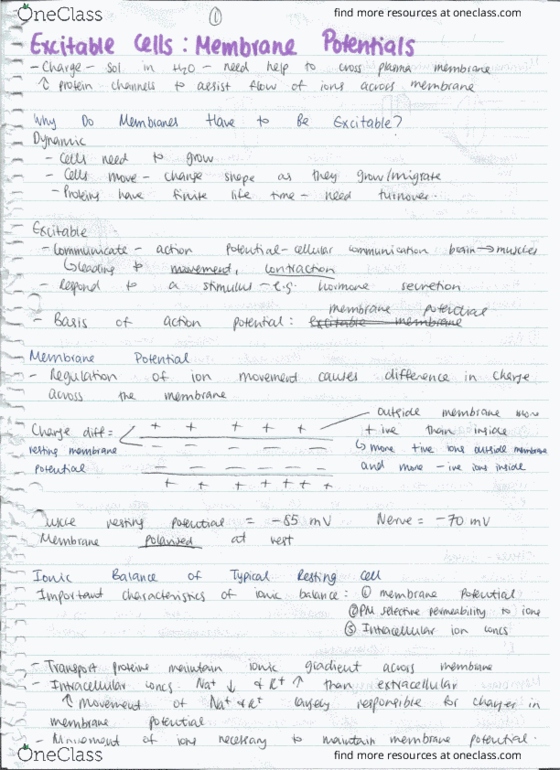 OneClass
①
find more resources at oneclass.com
Excitable Cells : Membrane Potentials
- Charge - sol in H₂O - need help to cross plasma membrane
↳ protein channels to assist flow of ions across membrane
Why Do Membranes Have to Be Excitable?
Dynamic
- Cells need to grow
- Cells move - change shape as they grow/migrate
- Proteins have finite life time - need turnover.
Excitable
- Communicate - action potential - cellular communication brain → muscles
↳ leading to movement, contraction
- Respond to a stimulus - e.g. hormone secretion
membrane potential
- Basis of action potential: excitable membrane
Membrane Potential
- Regulation of ion movement causes difference in charge
across the membrane
outside membrane more
+ ive than inside
↳ more +ive ions outside membrane
and more -ive ions inside
Charge diff =
resting membrane
potential
+ + + + +
- - - - -
- - - - -
+ + + + + +
resting potential = -85 mV Nerve = -70 mV
Membrane polarised at rest
Ionic Balance of Typical Resting Cell
Important characteristics of ionic balance: ① membrane potential
② PM selective permeability to ions
③ Intracellular ion concs
- Transport proteins maintain ionic gradient across membrane
- Intracellular concs. Na⁺ ↓ & K⁺ ↑ than extracellular
↑ movement of Na⁺ & K⁺ largely responsible for changes in
membrane potential
- Movement of ions necessary to maintain membrane potential.
OneClass
find more resources at oneclass.com